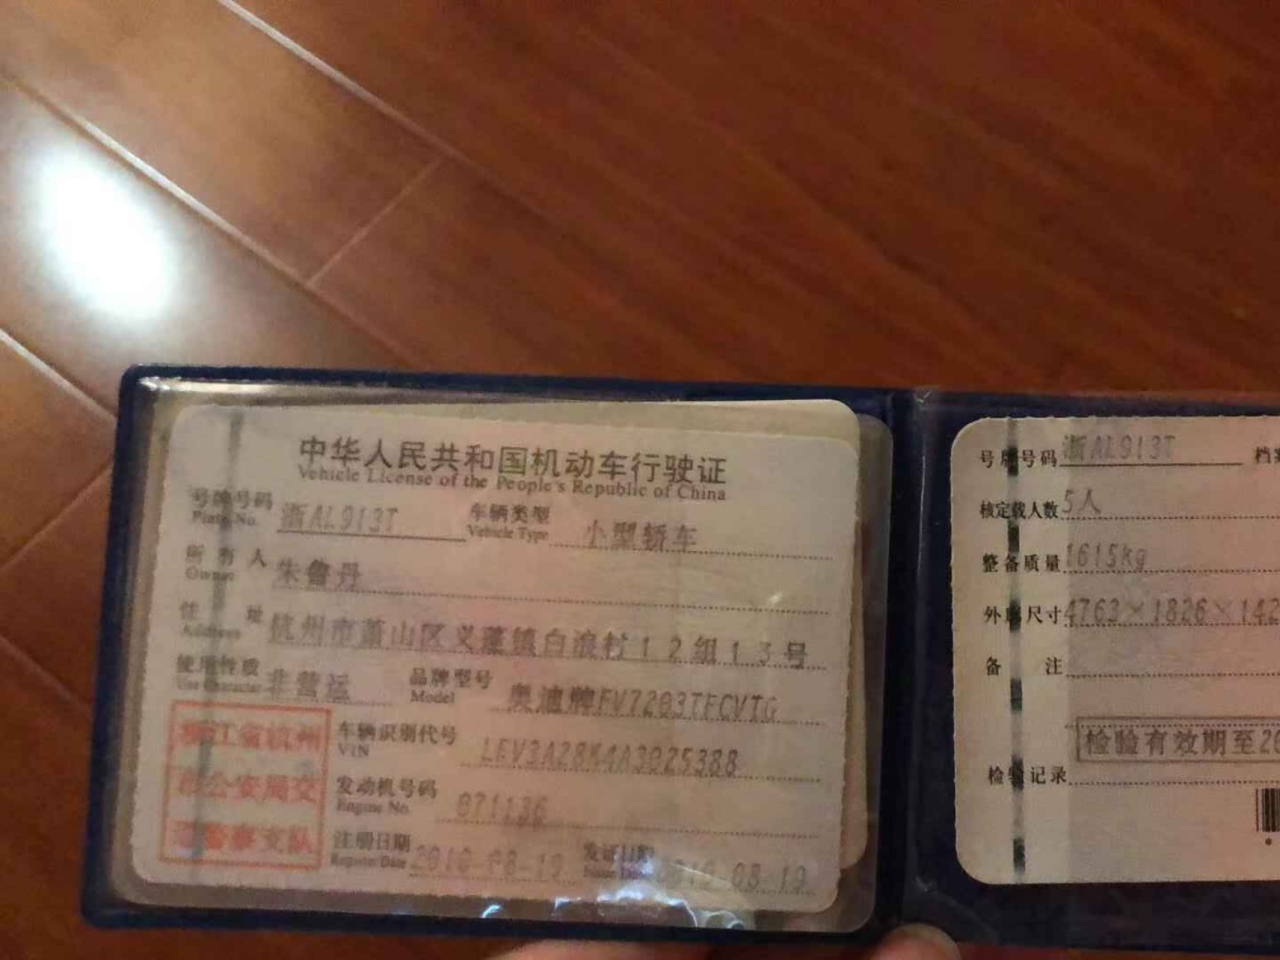 中华人民共和国机动车行驶证
Vehicle License of the People's Republic of China
号牌号码 浙AL913T 车辆类型 小型轿车
Plate No. Vehicle Type
所有人 朱鲁丹
Owner
住址 杭州市萧山区义蓬镇白浪村12组13号
Address
使用性质 非营运 品牌型号 奥迪牌FV7203TFCVTG
Use Character Model
车辆识别代号 LFV3A28K4A3025388
VIN
发动机号码 071136
Engine No.
注册日期 2010-08-19 发证日期 2010-08-19
Register Date Issue Date
浙江省杭州
市公安局交
通警察支队
号牌号码 浙AL913T 档案
核定载人数 5人
整备质量 1615kg
外廓尺寸 4763×1826×142
备注
检验有效期至20
检验记录